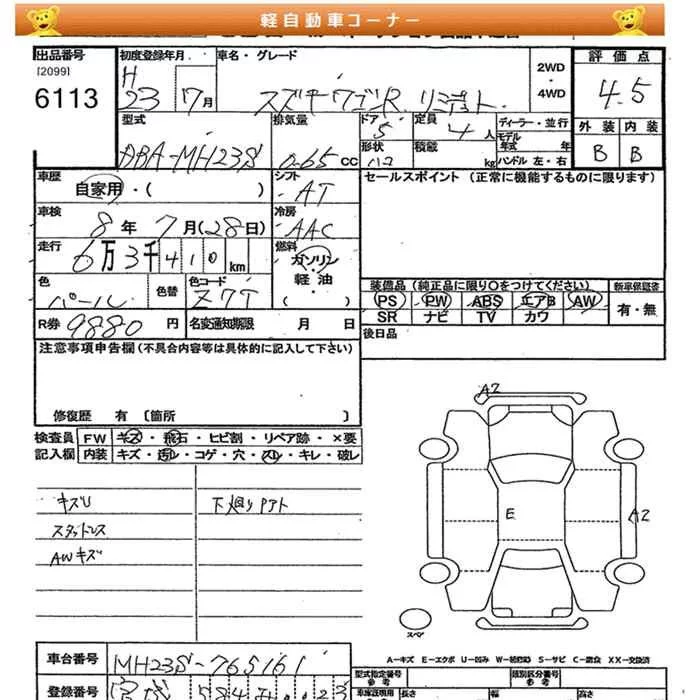 軽自動車コーナー
出品番号 初度登録年月 車名・グレード 2WD 評価点
[2099] H ・
6113 23 7月 スズキワゴンR リミテット 4WD 4.5
型式 排気量 ドア 定員 ディーラー・並行 外装 内装
5 4人 モデル年式 年
DBA-MH23S 0.65cc 形状 積載 kg ハンドル 左・右 B B
車歴 シフト セールスポイント (正常に機能するものに限ります)
自家用・( ) AT
車検 冷房
8年7月(28日) AAC
走行 燃料
6万3千410km ガソリン
・
色 色替 色コード 軽油 装備品(純正品に限り○をつけてください) 新車保証書
パール Z7T ( ) PS PW ABS エアB AW 有・無
R券 9880円 名変通知期限 月 日 SR ナビ TV カワ
注意事項申告欄(不具合内容等は具体的に記入して下さい) 後日品
修復歴 有 〔箇所 〕
検査員 FW キズ・飛石・ヒビ割・リペア跡・×要
記入欄 内装 キズ・汚レ・コゲ・穴・スレ・キレ・破レ
A2
キズU 下廻りPアト
スタットレス
AWキズ
E
A2
スペア
車台番号 MH23S-765161
A-キズ E-エクボ U-凹み S-サビ C-腐食 XX-交換済
登録番号
型式指定番号 類別区分番号
長さ 幅 高さ